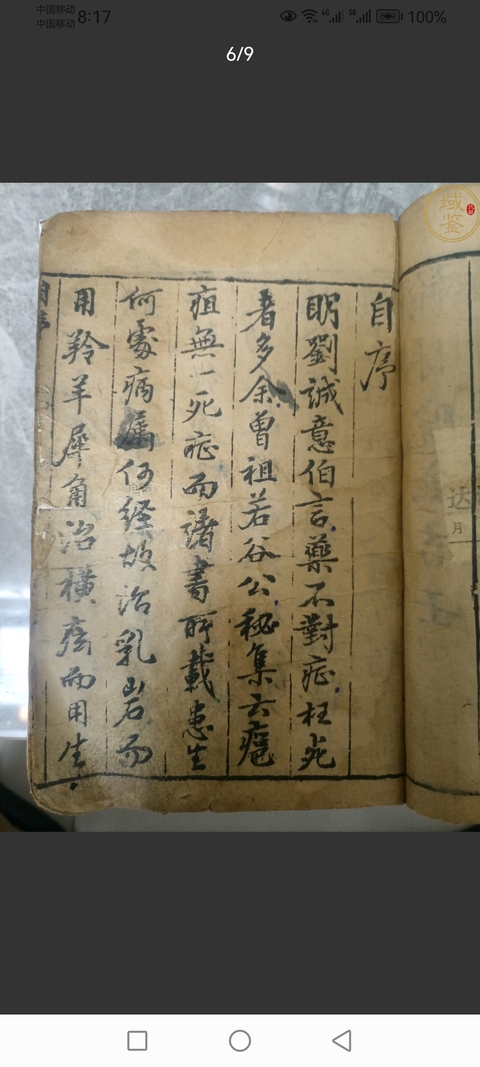 中国移动
中国移动
8:17
4G
5G
100%
6/9
域鉴
自序
明劉誠意伯言藥不對症枉死
者多余曾祖若谷公秘集云癰
疽無一死症而諸書所載患生
何處病屬何經故治乳岩而
用羚羊犀角治横痃而用生
自序
达
月